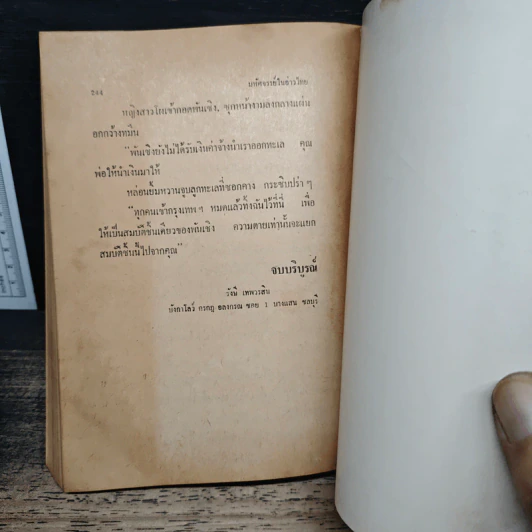 มหัศจรรย์ในอ่าวไทย
หญิงสาวโผเข้ากอดพันเชิง, ซุกหน้างามลงกลางแผ่น
อกกว้างหมึน
"พันเชิงยังไม่ได้รับเงินค่าจ้างนำเราออกทะเล คุณ
พ่อให้นำเงินมาให้
หล่อนยิ้มหวานจูบลูกทะเลที่ซอกคาง กระซิบปร่า ๆ
"ทุกคนเข้ากรุงเทพฯ หมดแล้วทิ้งฉันไว้ที่นี่ เพื่อ
ให้เป็นสมบัติชิ้นเดียวของพันเชิง ความตายเท่านั้นจะแยก
สมบัติชิ้นนี้ไปจากคุณ"
จบบริบูรณ์
วังษี เทพวรสิน
บังกาโลว์ กรกฎ อลงกรณ ซกย 1 บางแสน ชลบุรี